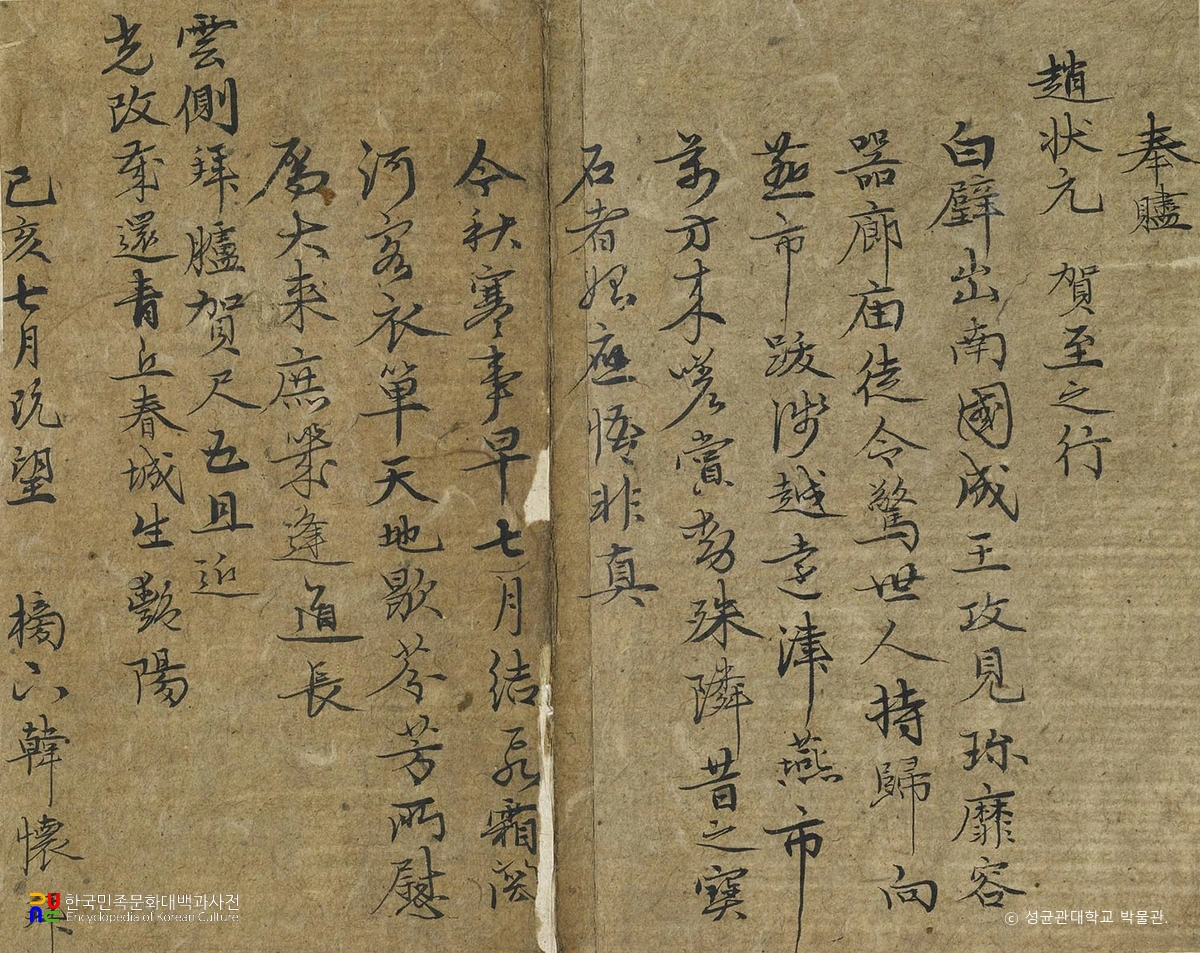 奉贐
趙狀元 賀至之行
白璧出南國成王攻見珎靡容
器廊庙徒令驚世人持歸向
燕市跋涉越遠津燕市
萬方来嗟賞勢殊隣昔之寶
石者始應悟非真
今秋寒事早七月結
河客衣單天地歇芬芳所慰
大來庶業逢道長
雲側拜臚賀尺五且近
光改歲還青丘春城生艶陽
己亥七月旣望 橘下韓懷
한국민족문화대백과사전
Encyclopedia of Korean Culture
ⓒ 성균관대학교 박물관.